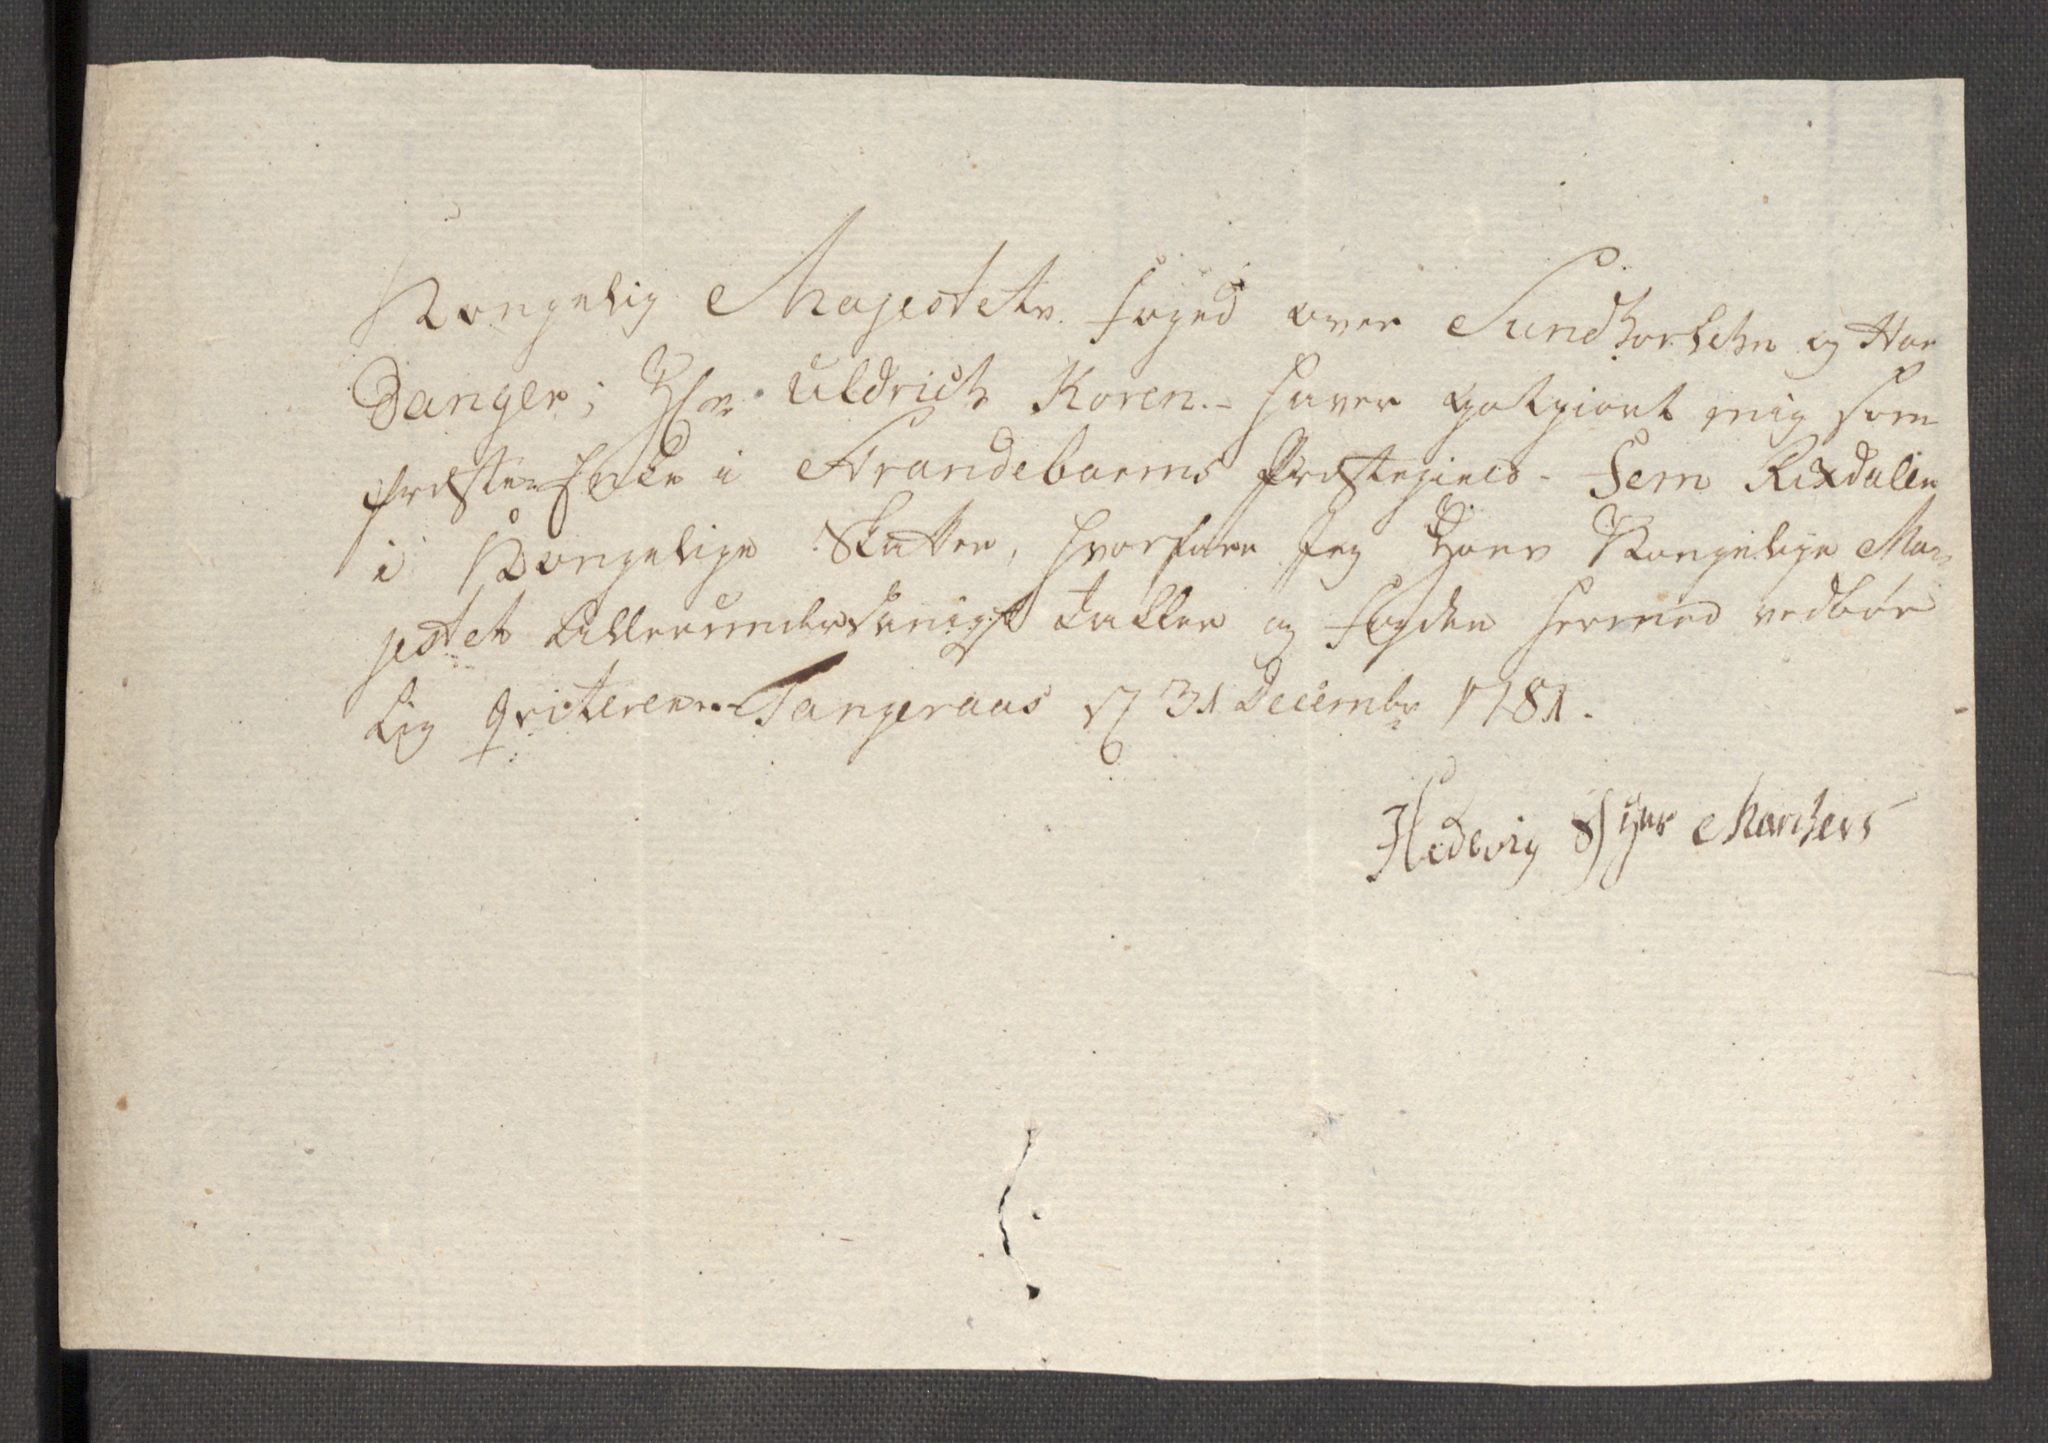 Kongelig Majestets foged over Sundhorlehn og Har
Danger; Hr. Uldrich Koren. haver godgiort mig som
præste Enke i Strandebarms Præstegield - Fem Rixdaler
i Kongelige Skatter, hvorfore Jeg Hans Kongelige Ma-
jestet allerunderdanigst takker og fogden hermed vedbør
lig qviterer. Tangeraas d 31 Decembr 1781.
Hedevig Marchers